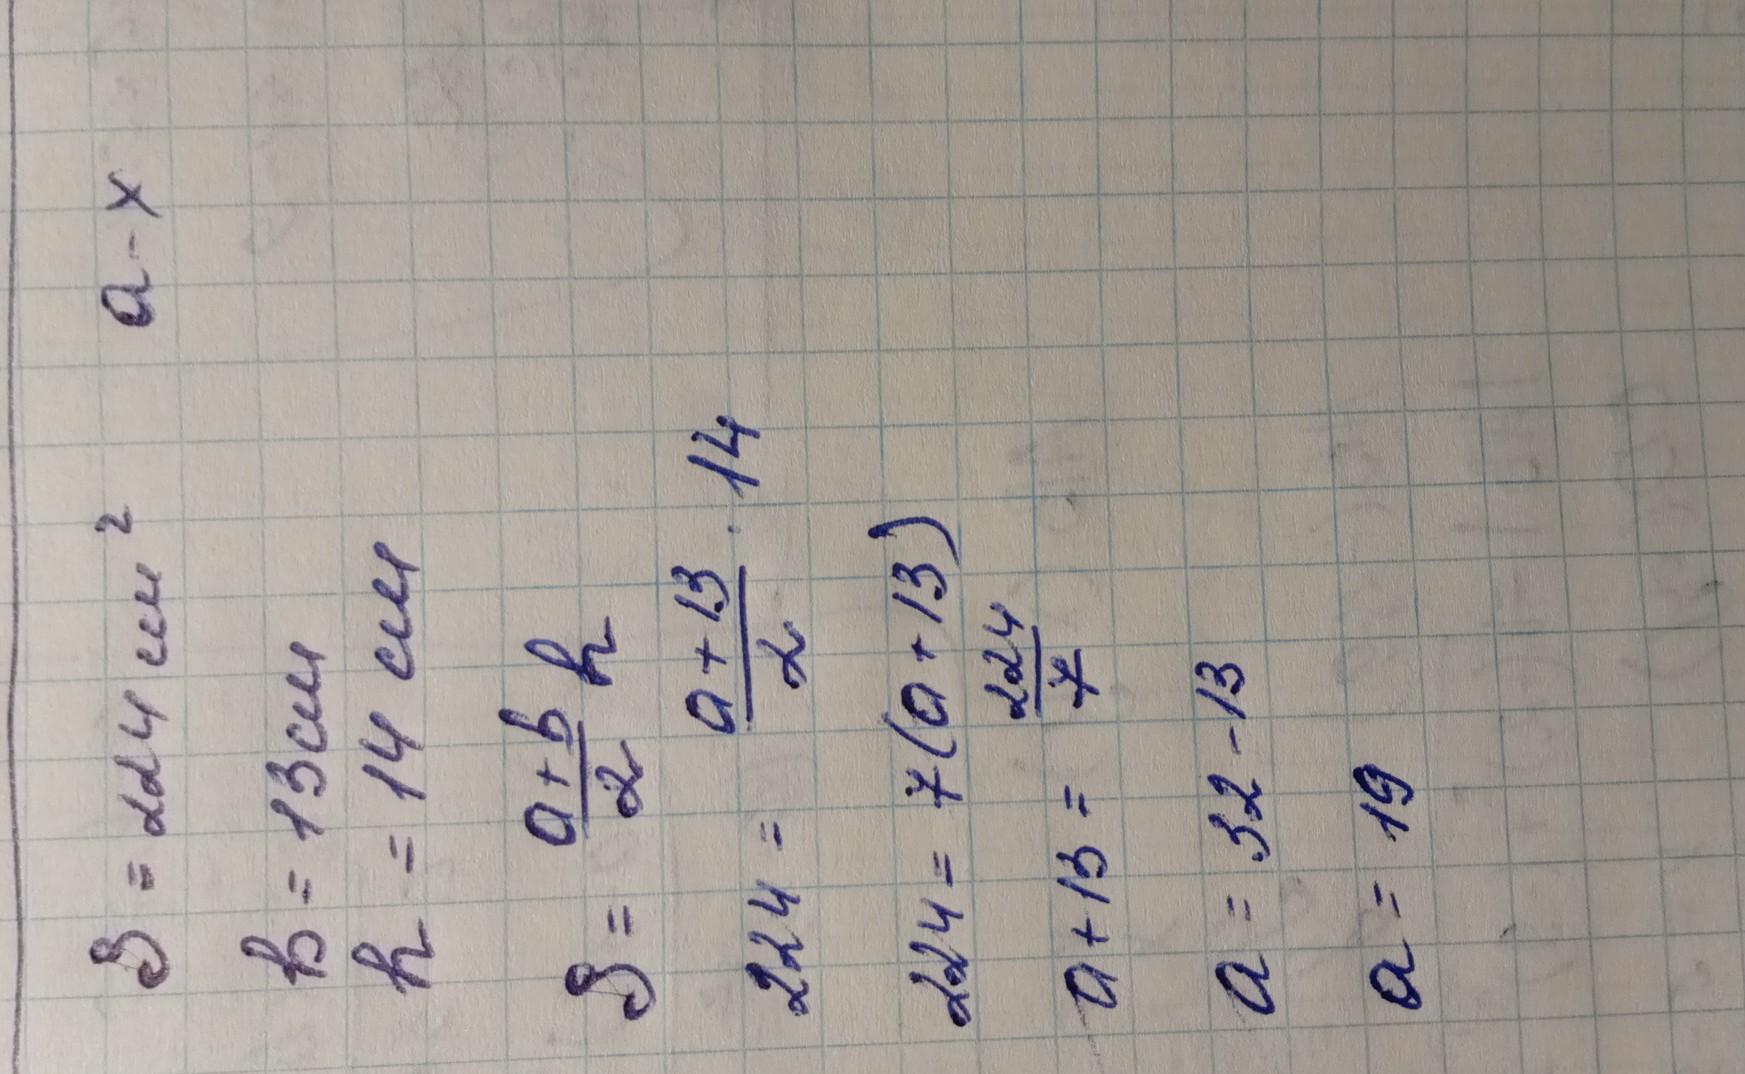 S = 224 см² a - x
b = 13 см
h = 14 см
S = \frac{a+b}{2} h
224 = \frac{a+13}{2} · 14
224 = 7(a+13)
a+13 = \frac{224}{7}
a = 32 - 13
a = 19